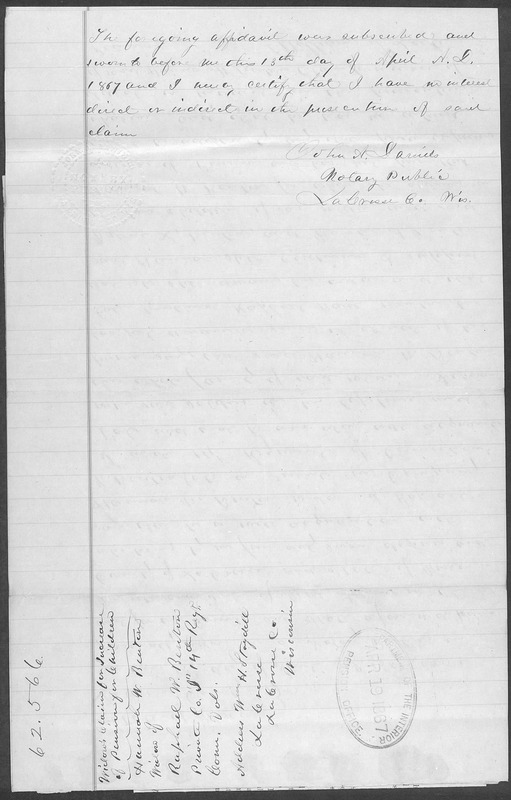 The foregoing affidavit was subscribed and
sworn to before me this 13th day of April A. D.
1867 and I hereby certify that I have no interest
direct or indirect in the prosecution of said
claim
John A. Daniels
Notary Public
LaCrosse Co. Wis.
62.566
Widow's Claim for Increase
of Pension for Children
Hannah W. Benton
Widow of
Raphael W. Benton
Private Co. 14th Regt
Conn. Vols.
Address Wm H.
LaCrosse
LaCrosse Co
Wisconsin
OF THE INTERIOR
PENSION OFFICE
APR 19 1867